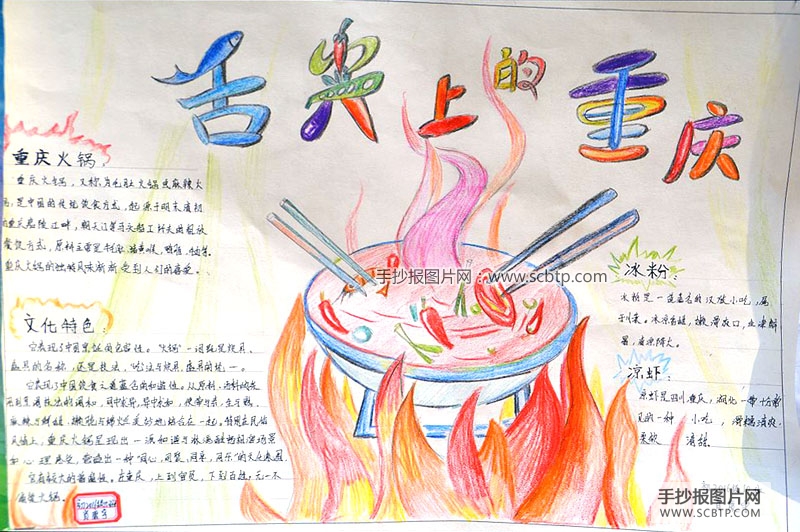 舌尖上的重庆
重庆火锅:
重庆火锅，又称为毛肚火锅或麻辣火
锅，是中国的传统饮食方式，起源于明末清初
的重庆嘉陵江畔，朝天门等码头船工纤夫的粗放
餐饮方式，原料主要是牛毛肚、猪黄喉、鸭肠、牛血等。
重庆火锅的独特风味渐渐受到人们的喜爱。
文化特色:
它表现了中国烹饪的包容性。“火锅”一词既是炊具、
盛具的名称，还是技法、“吃”法与炊具、盛具的统一。
它表现了中国饮食之道蕴含的和谐性。从原料、汤料的采
用到烹调技法的
麻辣与鲜甜，嫩脆与绵烂
重庆火锅呈现出一派和谐与
心理感受，营造出一种“同心、同聚、同享、同乐”的文化氛围。
它有较大的普遍性。在重庆，上到官员，下到百姓，无一不
火锅。
手抄报图片网：www.scbtp.com
冰粉:
冰粉是一道著名的汉族小吃，属
于川菜。冰凉香甜，嫩滑爽口，生津解
暑，清凉降火。
凉虾:
凉虾是四川、重庆、湖北一带十分常
见的一种小吃，
清甜
手抄报图片网
WWW.SCBTP.COM